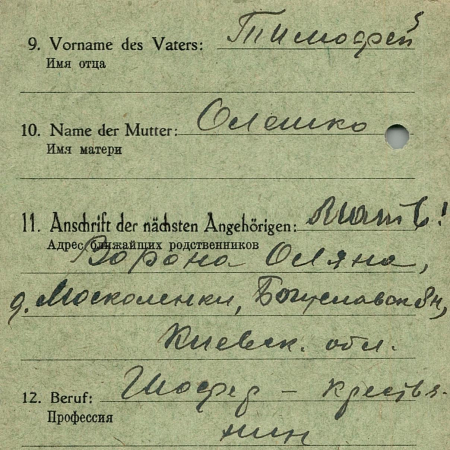 9. Vorname des Vaters: Тимофей
Имя отца
10. Name der Mutter: Олешко
Имя матери
11. Anschrift der nächsten Angehörigen: Мать!
Адрес ближайших родственников
Ворона Оляна,
д. Москаленки, Богуславск. р-н,
Киевск. обл.
12. Beruf: Шофер – крестья-
Профессия
нин